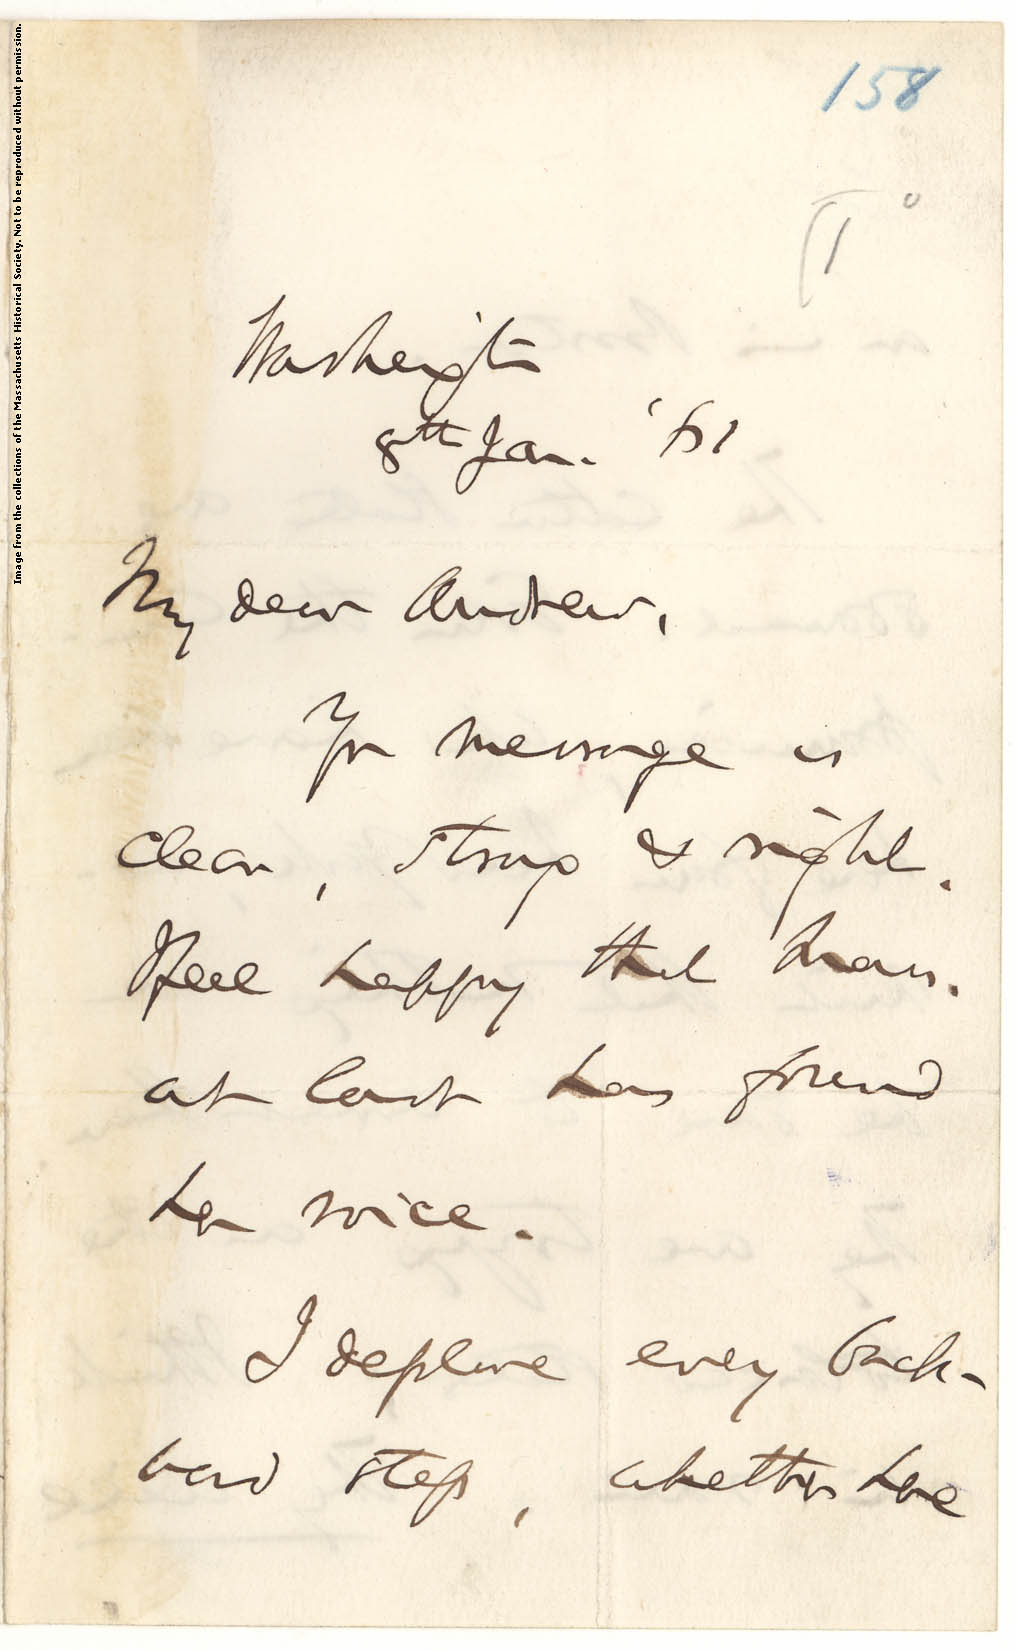 Image from the collections of the Massachusetts Historical Society. Not to be reproduced without permission.
158
1
Washington
8th Jan. '61
My dear Andrew,
Yr message is
clear, strong & right.
I feel happy that Mass.
at last has found
her voice.
I deplore every back-
ward step, whether here